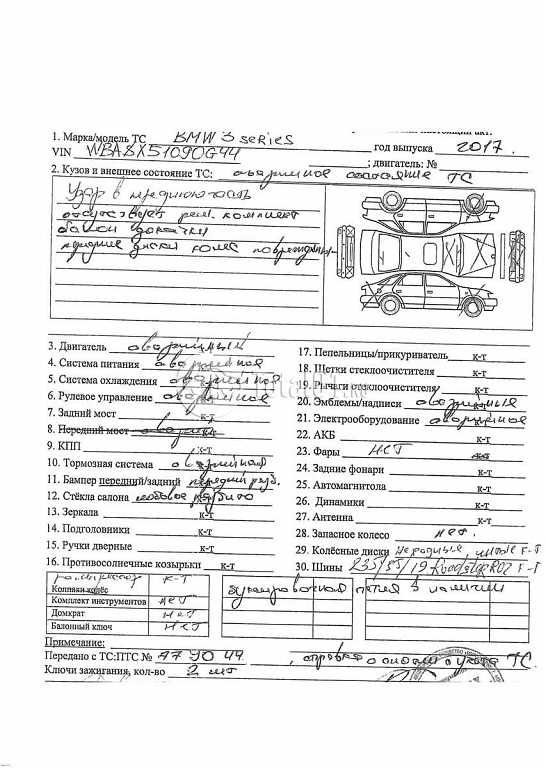 1. Марка/модель ТС BMW 3 series
год выпуска 2017.
VIN WBA8X51090G44 ; двигатель: №
2. Кузов и внешнее состояние ТС: аварийное состояние ТС
Удар в переднюю часть
отсутствует рем. комплект
балон докачки
передние диски колес повреждены
3. Двигатель аварийный
4. Система питания аварийная
5. Система охлаждения аварийная
6. Рулевое управление аварийное
7. Задний мост к-т
8. Передний мост аварийн
9. КПП к-т
10. Тормозная система аварийная
11. Бампер передний/задний передний разб.
12. Стёкла салона лобовое разбито
13. Зеркала к-т
14. Подголовники к-т
15. Ручки дверные к-т
16. Противосолнечные козырьки к-т
17. Пепельницы/прикуриватель к-т
18. Щетки стеклоочистителя к-т
19. Рычаги стеклоочистителя к-т
20. Эмблемы/надписи аварийные
21. Электрооборудование аварийное
22. АКБ к-т
23. Фары нет
24. Задние фонари к-т
25. Автомагнитола к-т
26. Динамики к-т
27. Антенна к-т
28. Запасное колесо нет.
29. Колёсные диски не родные, литые к-т
30. Шины 235/35/19 Roadstone к-т
к-т
Колпаки колёс
Комплект инструментов нет
Домкрат нет
Балонный ключ нет
буксировочная петля в наличии
Примечание:
Передано с ТС:ПТС № 779044, справка о снятии с учета ТС
Ключи зажигания, кол-во 2 шт